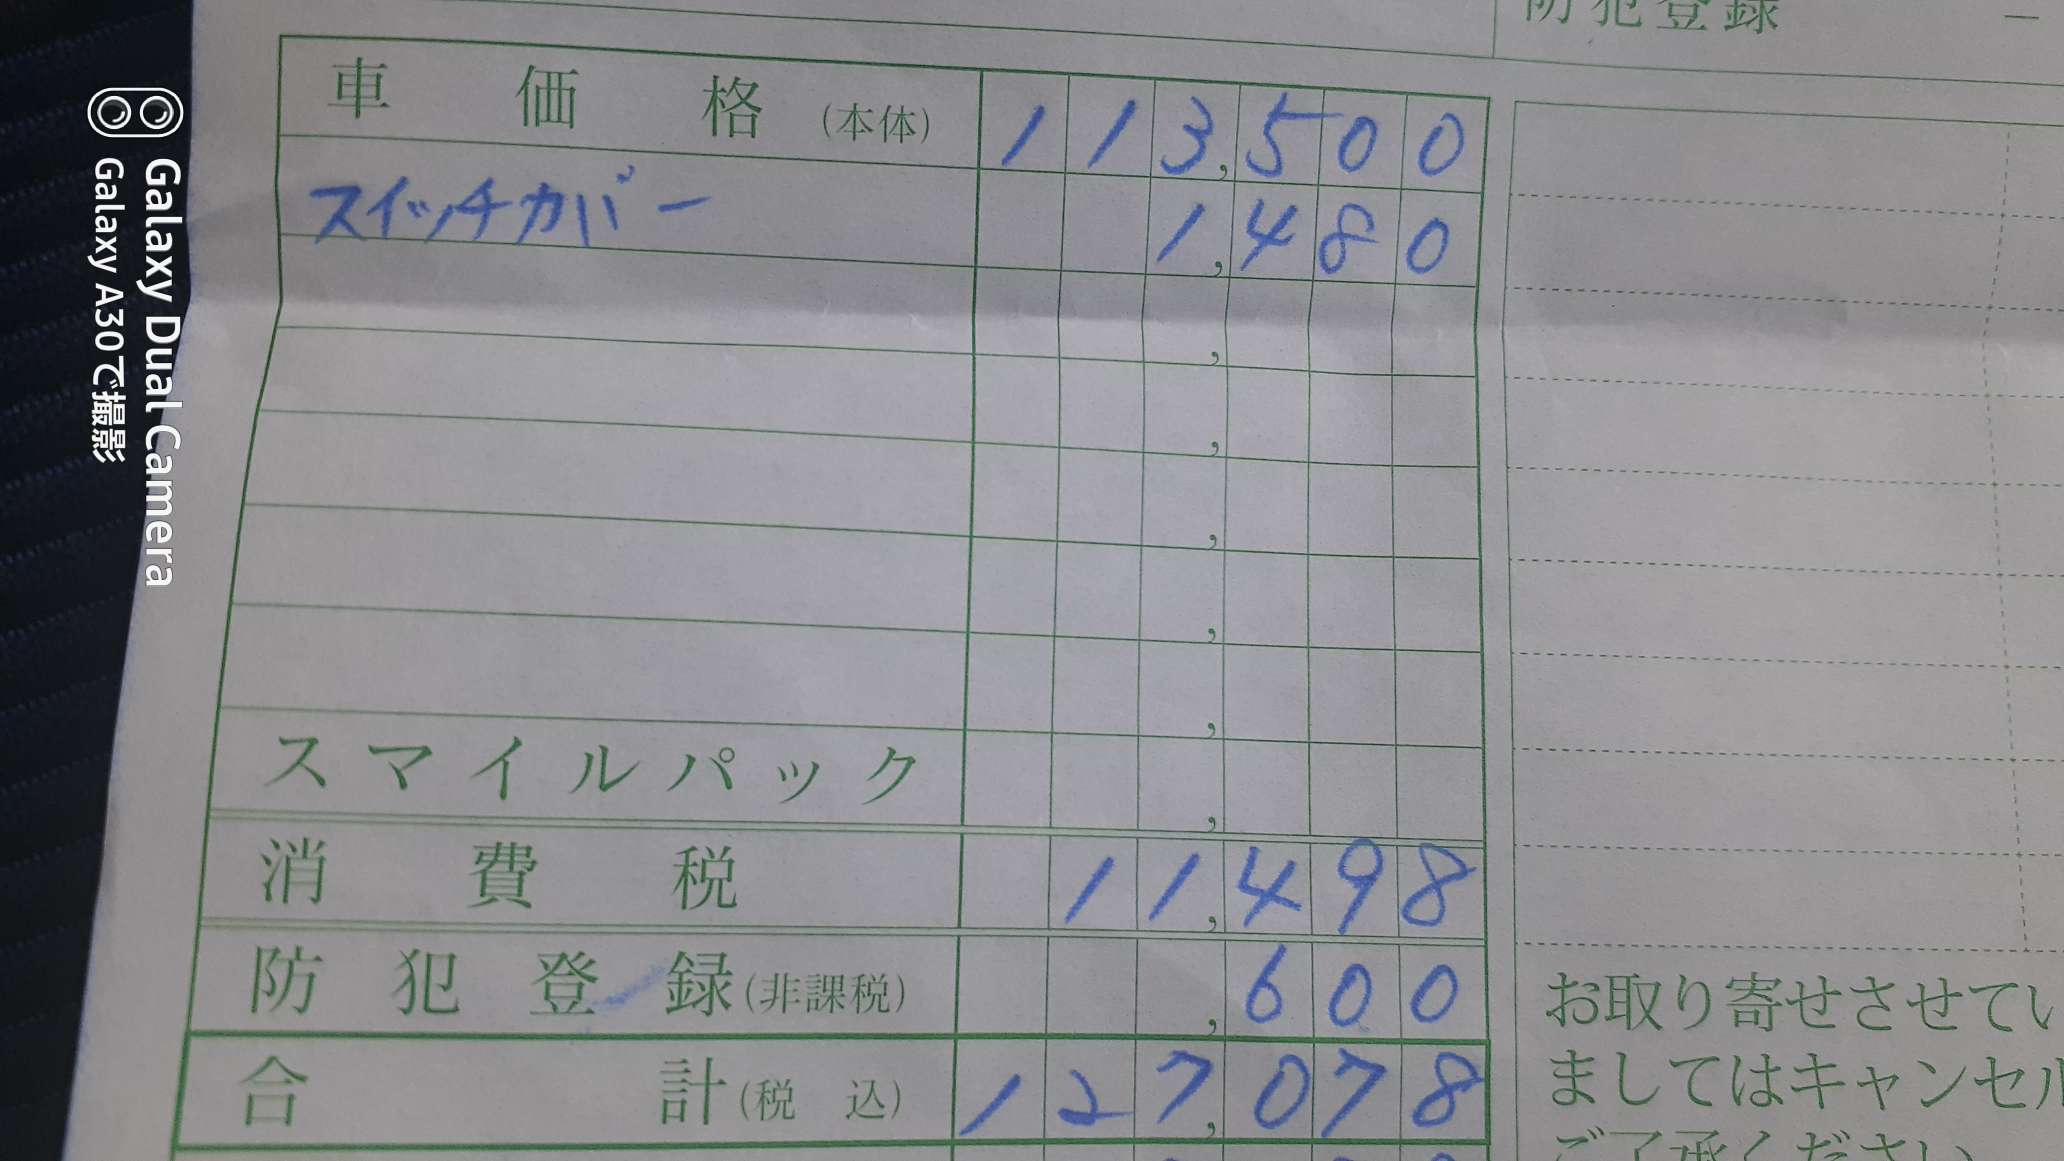 防犯登録 −
車価格(本体) 113,500
スイッチカバー 1,480
スマイルパック
消費税 11,498
防犯登録(非課税) 600
合計(税込) 127,078
お取り寄せさせてい
ましてはキャンセル
ご了承ください
Galaxy Dual Camera
Galaxy A30で撮影